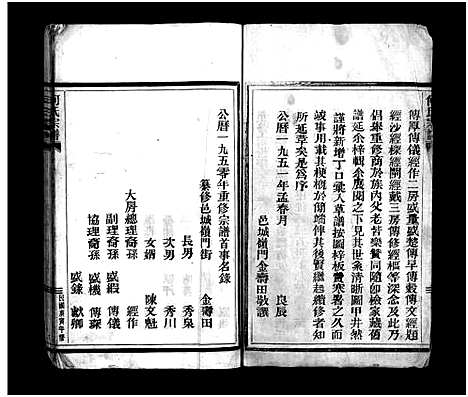 傳厚傳儀經作二房盛董盛楚傳早傳穀傳文經題
經沙經樑經開經戴三房傳修經樞等深念及此乃
倡舉重修商於族內父老皆樂贊同隨卽檢家藏舊
譜延余梓輯余展閱之下見其世系清晰圖甲井然
謹將新增丁口彙入草譜按圖梓板費寒暑之久而
竣事用載其梗概於簡端俾其後賢繼起續修者知
所延萃矣是爲序
公曆一九五一年孟春月 良辰
邑城嶺門金壽田敬譔
公曆一九五零年重修宗譜首事名錄
纂修邑城嶺門街 金壽田
長男 秀泉
次男 秀川
女婿 陳文魁
大房總理裔孫 經作
副理裔孫 盛嘏 傳儀
協理裔孫 盛機 傳琛
盛錄 獻卿
何氏宗譜
民國庚寅年修